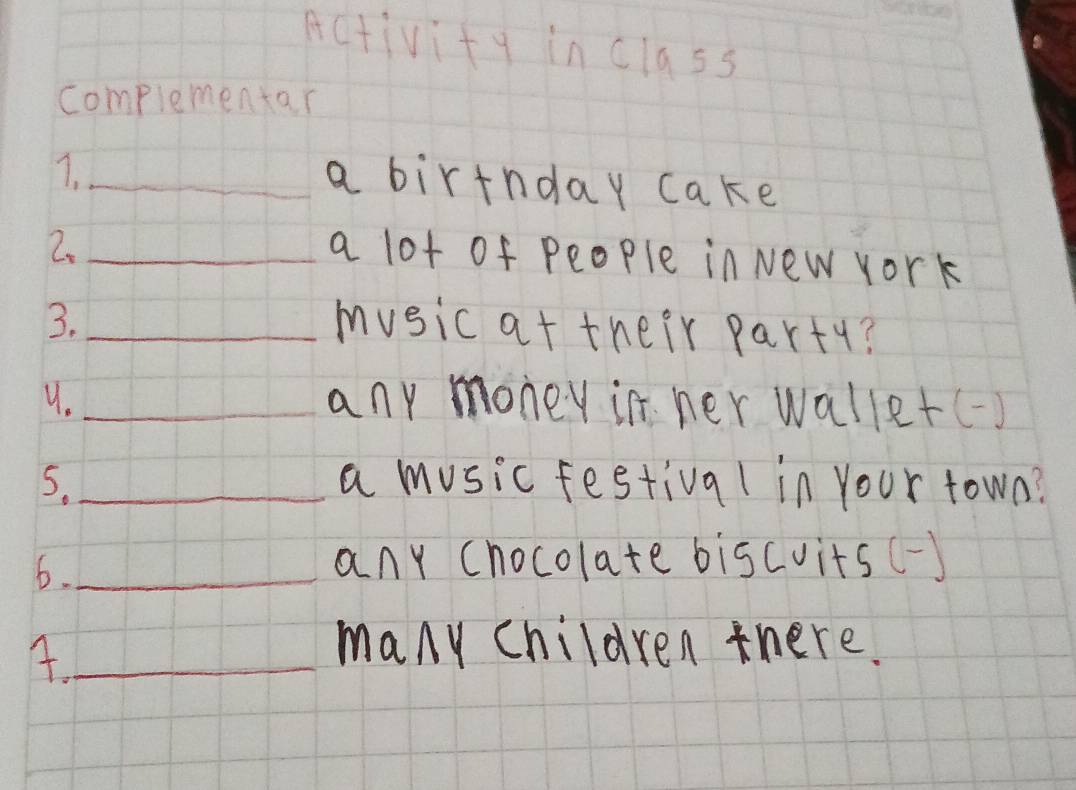 Activity in class
complementar
1. ________ a birthday cake
2. ________ a lot of people in New York
3. ________ music at their party?
4. ________ any money in her wallet (-)
5. ________ a music festival in your town?
6. ________ any chocolate biscuits (-)
7. ________ many children there.